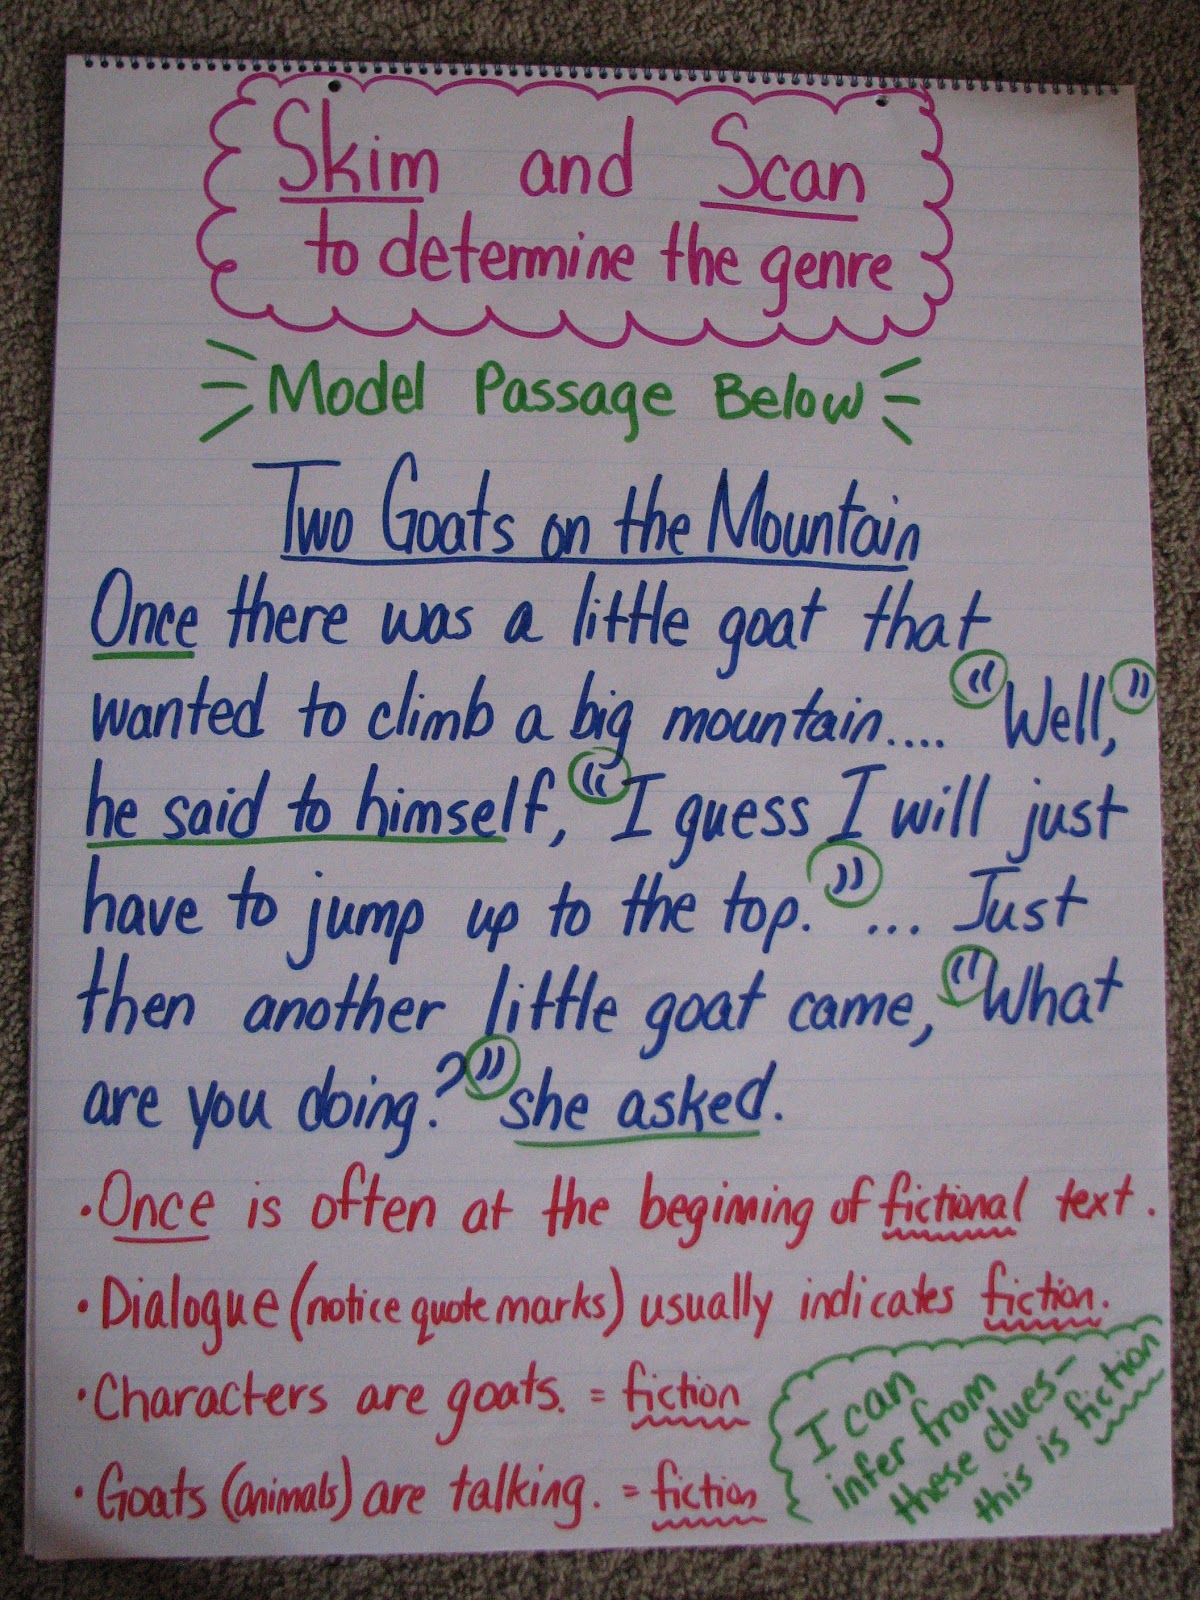 Skim and Scan
to determine the genre
Model Passage Below
Two Goats on the Mountain
Once there was a little goat that
wanted to climb a big mountain.... "Well,"
he said to himself, "I guess I will just
have to jump up to the top." ... Just
then another little goat came, "What
are you doing?" she asked.
• Once is often at the beginning of fictional text.
• Dialogue (notice quote marks) usually indicates fiction.
• Characters are goats. = fiction
• Goats (animals) are talking. = fiction
I can
infer from
these clues-
this is fiction